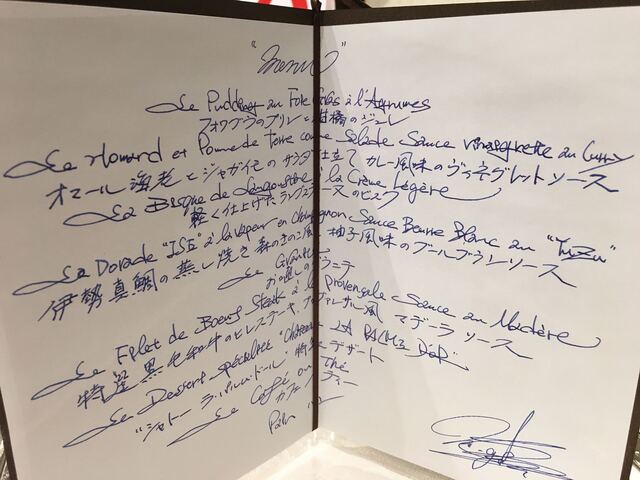 "Menu"
Le Pudding au Foie Gras à l'Agrumes
フォワグラのプリンと柑橘のジュレ
Le Homard et Pomme de Terre comme Salade Sauce vinaigrette au Curry
オマール海老とジャガイモのサラダ仕立て カレー風味のヴィネグレットソース
La Bisque de Langoustine à la Crème Légère
軽く仕上げたラングスティーヌのビスク
La Dorade "ISE" à la Vapeur en Champignon Sauce Beurre Blanc au "YuZu"
伊勢真鯛の蒸し焼き 森のきのこ風 柚子風味のブールブランソース
Le Granité
お口直しのグラニテ
Le Filet de Boeuf Steak à la Provençale Sauce au Madère
特選黒毛和牛のヒレステーキ、プロヴァンサル風 マデーラソース
Le Dessert Spécialité "Château LA PALME D'OR"
"シャトー ラ・パルムドール" 特製デザート
Le Café ou Thé
カフェ ティー
Pain